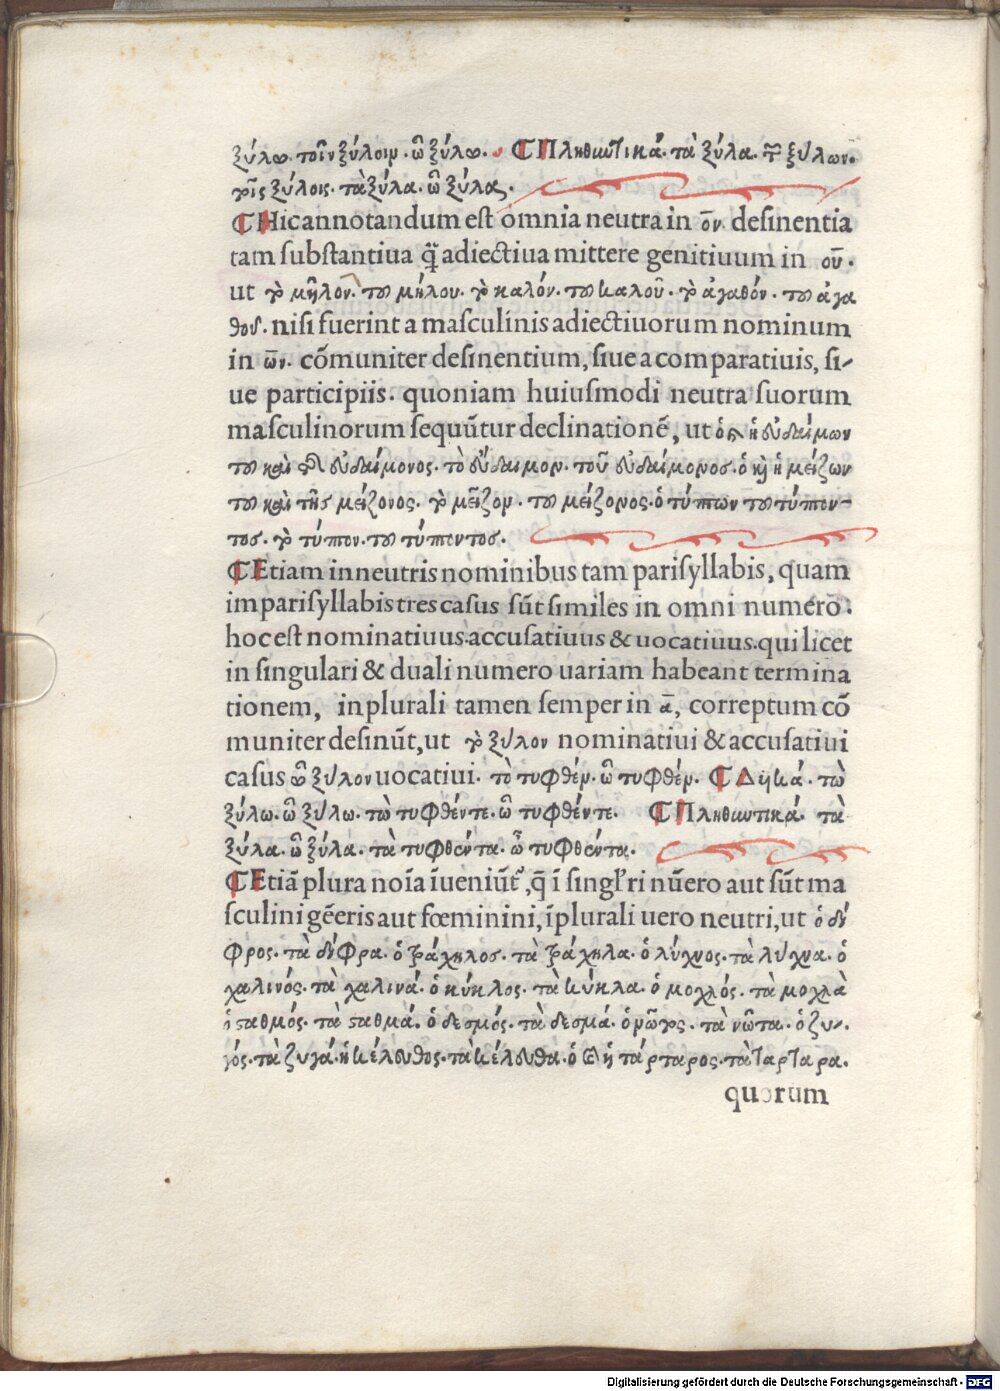 ξύλω. τοῖν ξύλοιν. ὦ ξύλω. ⁋ Πληθυντικά. τὰ ξύλα. τῶν ξύλων.
τοῖς ξύλοις. τὰ ξύλα. ὦ ξύλα.
⁋ Hic annotandum est omnia neutra in ον̄ desinentia
tam substantiua q̃ adiectiua mittere genitiuum in οῡ.
ut τὸ μῆλον. τοῦ μήλου. τὸ καλόν. τοῦ καλοῦ. τὸ ἀγαθόν. τοῦ ἀγα
θοῦ. nisi fuerint a masculinis adiectiuorum nominum
in ω̄ν. cõmuniter desinentium, siue a comparatiuis, si-
ue participiis. quoniam huiusmodi neutra suorum
masculinorum sequũtur declinationẽ, ut ὁ καὶ ἡ εὐδαίμων
τοῦ καὶ τῆς εὐδαίμονος. τὸ εὔδαιμον. τοῦ εὐδαίμονος. ὁ καὶ ἡ μείζων
τοῦ καὶ τῆς μείζονος. τὸ μεῖζον. τοῦ μείζονος. ὁ τύπτων τοῦ τύπτον-
τος. τὸ τύπτον. τοῦ τύπτοντος.
⁋ Etiam in neutris nominibus tam parisyllabis, quam
imparisyllabis tres casus sũt similes in omni numero.
hoc est nominatiuus.accusatiuus & uocatiuus.qui licet
in singulari & duali numero uariam habeant termina
tionem, in plurali tamen semper in ᾱ, correptum cõ
muniter desinũt, ut τὸ ξύλον nominatiui & accusatiui
casus ὦ ξύλον uocatiui. τὸ τυφθέν. ὦ τυφθέν. ⁋ Δυϊκά. τὼ
ξύλω. ὦ ξύλω. τὼ τυφθέντε. ὦ τυφθέντε. ⁋ Πληθυντικά. τὰ
ξύλα. ὦ ξύλα. τὰ τυφθέντα. ὦ τυφθέντα.
⁋ Etiã plura noĩa ĩueniũt᷑, q̃ ĩ singl̃ri nũero aut sũt ma
sculini gẽeris aut fœminini, ĩ plurali uero neutri, ut ὁ δί
φρος. τὰ δίφρα. ὁ τράχηλος. τὰ τράχηλα. ὁ λύχνος. τὰ λύχνα. ὁ
χαλινός. τὰ χαλινά. ὁ κύκλος. τὰ κύκλα. ὁ μοχλός. τὰ μοχλὰ
ὁ σταθμός. τὰ σταθμά. ὁ δεσμός. τὰ δεσμά. ὁ νῶτος. τὰ νῶτα. ὁ ζυ-
γός. τὰ ζυγά. ἡ κέλευθος. τὰ κέλευθα. ὁ καὶ ἡ τάρταρος. τὰ τάρταρα.
quorum
Digitalisierung gefördert durch die Deutsche Forschungsgemeinschaft - DFG